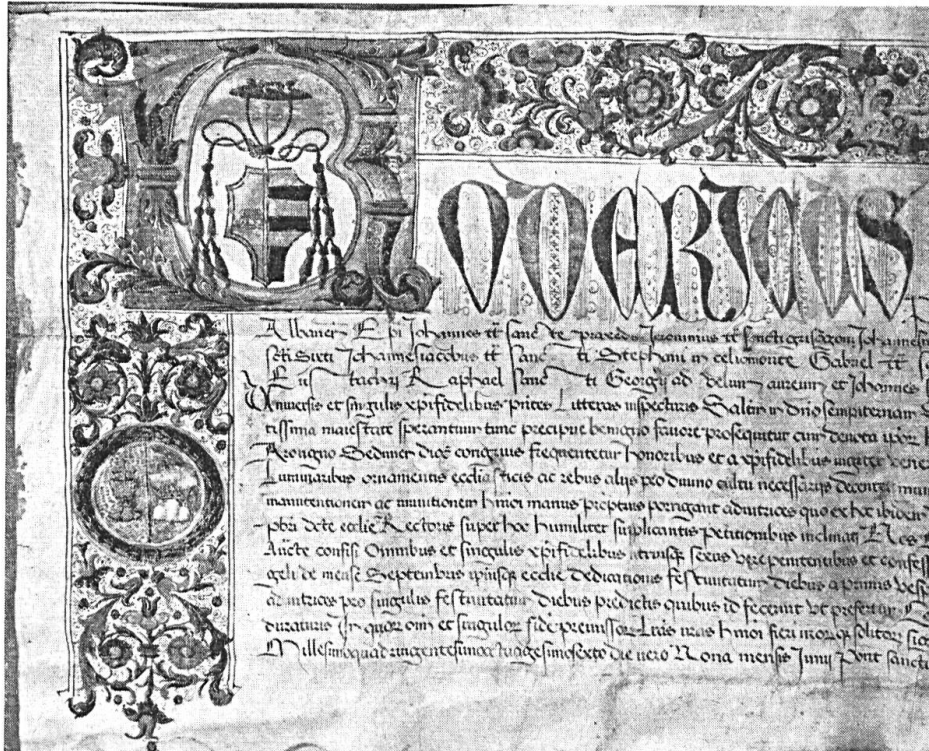 RODERICUS
Albaneñ Epi Johannes tt sancte praxedis Jeronimus tt sancti grisogoni Johannes
scti Sixti Johannes Jacobus tt sancti Stephani in celiomonte Gabriel tt
Eustachij Raphael sancti Georgij ad velum aureum et Johannes
Universis et singulis xpifidelibus pntes litteras inspecturis Saltem in dno sempiternam
tissima maiestate sperantium tunc precipue benigno favore prosequitur cum devota ipor
Arougno Seduneñ dioc̃ congruis frequentetur honoribus et a xpifidelibus iugiter vene
Luminaribus ornamentis ecclesiasticis ac rebus alijs pro divino cultu necessarijs decenter mun
manutentionem ac munitionem hmoi manus promptius porrigant adiutrices quo ex hoc ibidem
pbri dicte ecclie Rectoris super hoc humiliter supplicantis petitionibus inclinati Nos
Aucte confisi Omnibus et singulis xpifidelibus utriusq sexus vere penitentibus et confess
geli de mense Septembris ipiusq ecclie dedicationis festivitatum diebus a primis vesp
adiutrices pro singulis festivitatum diebus predictis quibus id fecerint ut prefertur
duraturis In quor omi et singulor fide premissor Lras nras hmoi fieri nrorq solitor sig
Millesimoquadringentesimooctuagesimosexto die vero Nona mensis Junij Pont sancti